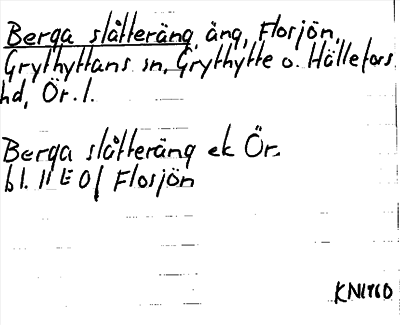 Berga slåtteräng, äng, Flosjön,
Grythyttans sn, Grythytte o. Hällefors
hd, Ör. l.
Berga slåtteräng ek Ör.
bl. 11 E 0 f Flosjön
KN1960